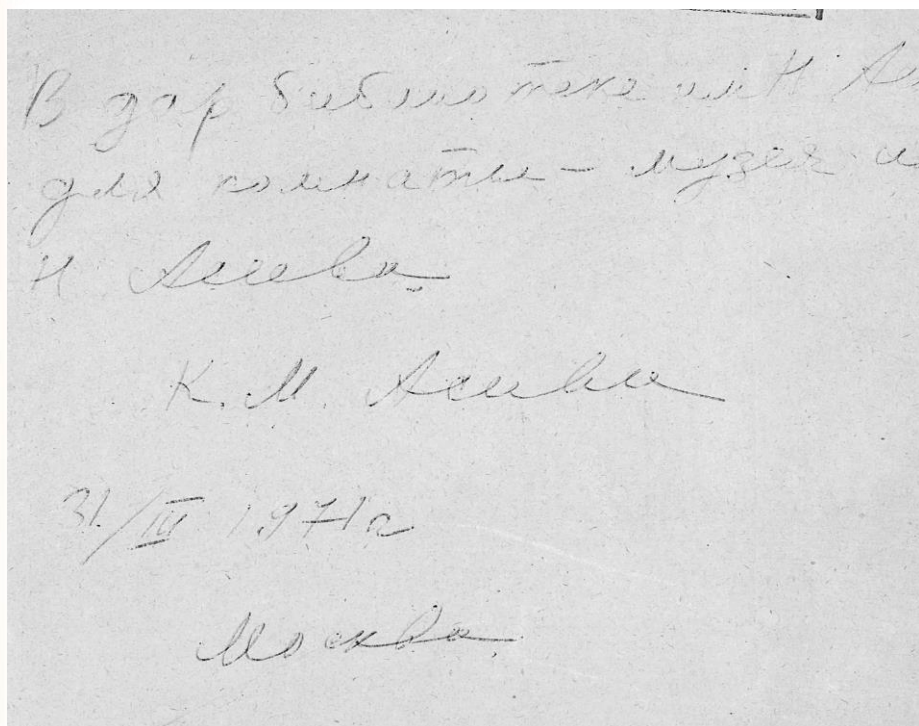 В дар библиотеке им Н Ас
для комнаты – музея и
Н Асеева
К. М. Асеева
31/III 1971 г
Москва